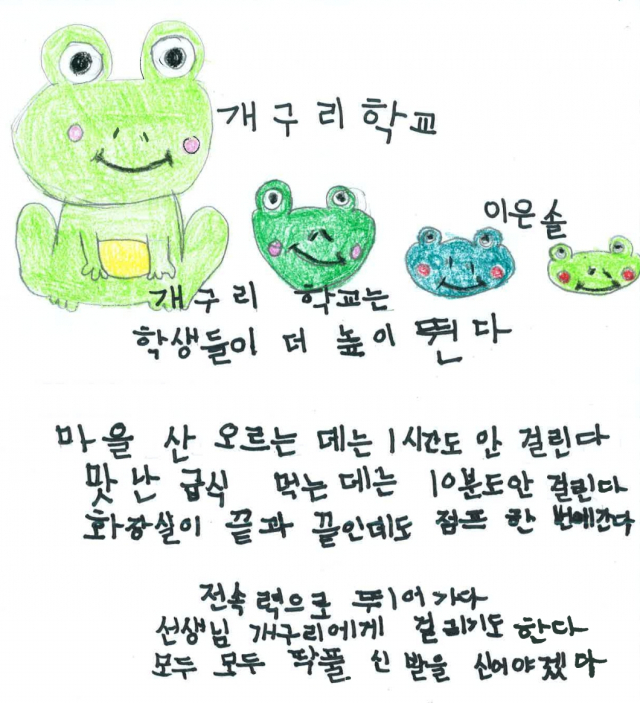 개구리학교
이은솔
개구리 학교는
학생들이 더 높이 뛴다
마을 산 오르는 데는 1시간도 안 걸린다
맛난 급식 먹는데는 10분도안 걸린다
화장실이 끝과 끝인데도 점프 한 번에간다
전속력으로 뛰어가다
선생님 개구리에게 걸리기도 한다
모두 모두 딱풀 신발을 신어야겠다